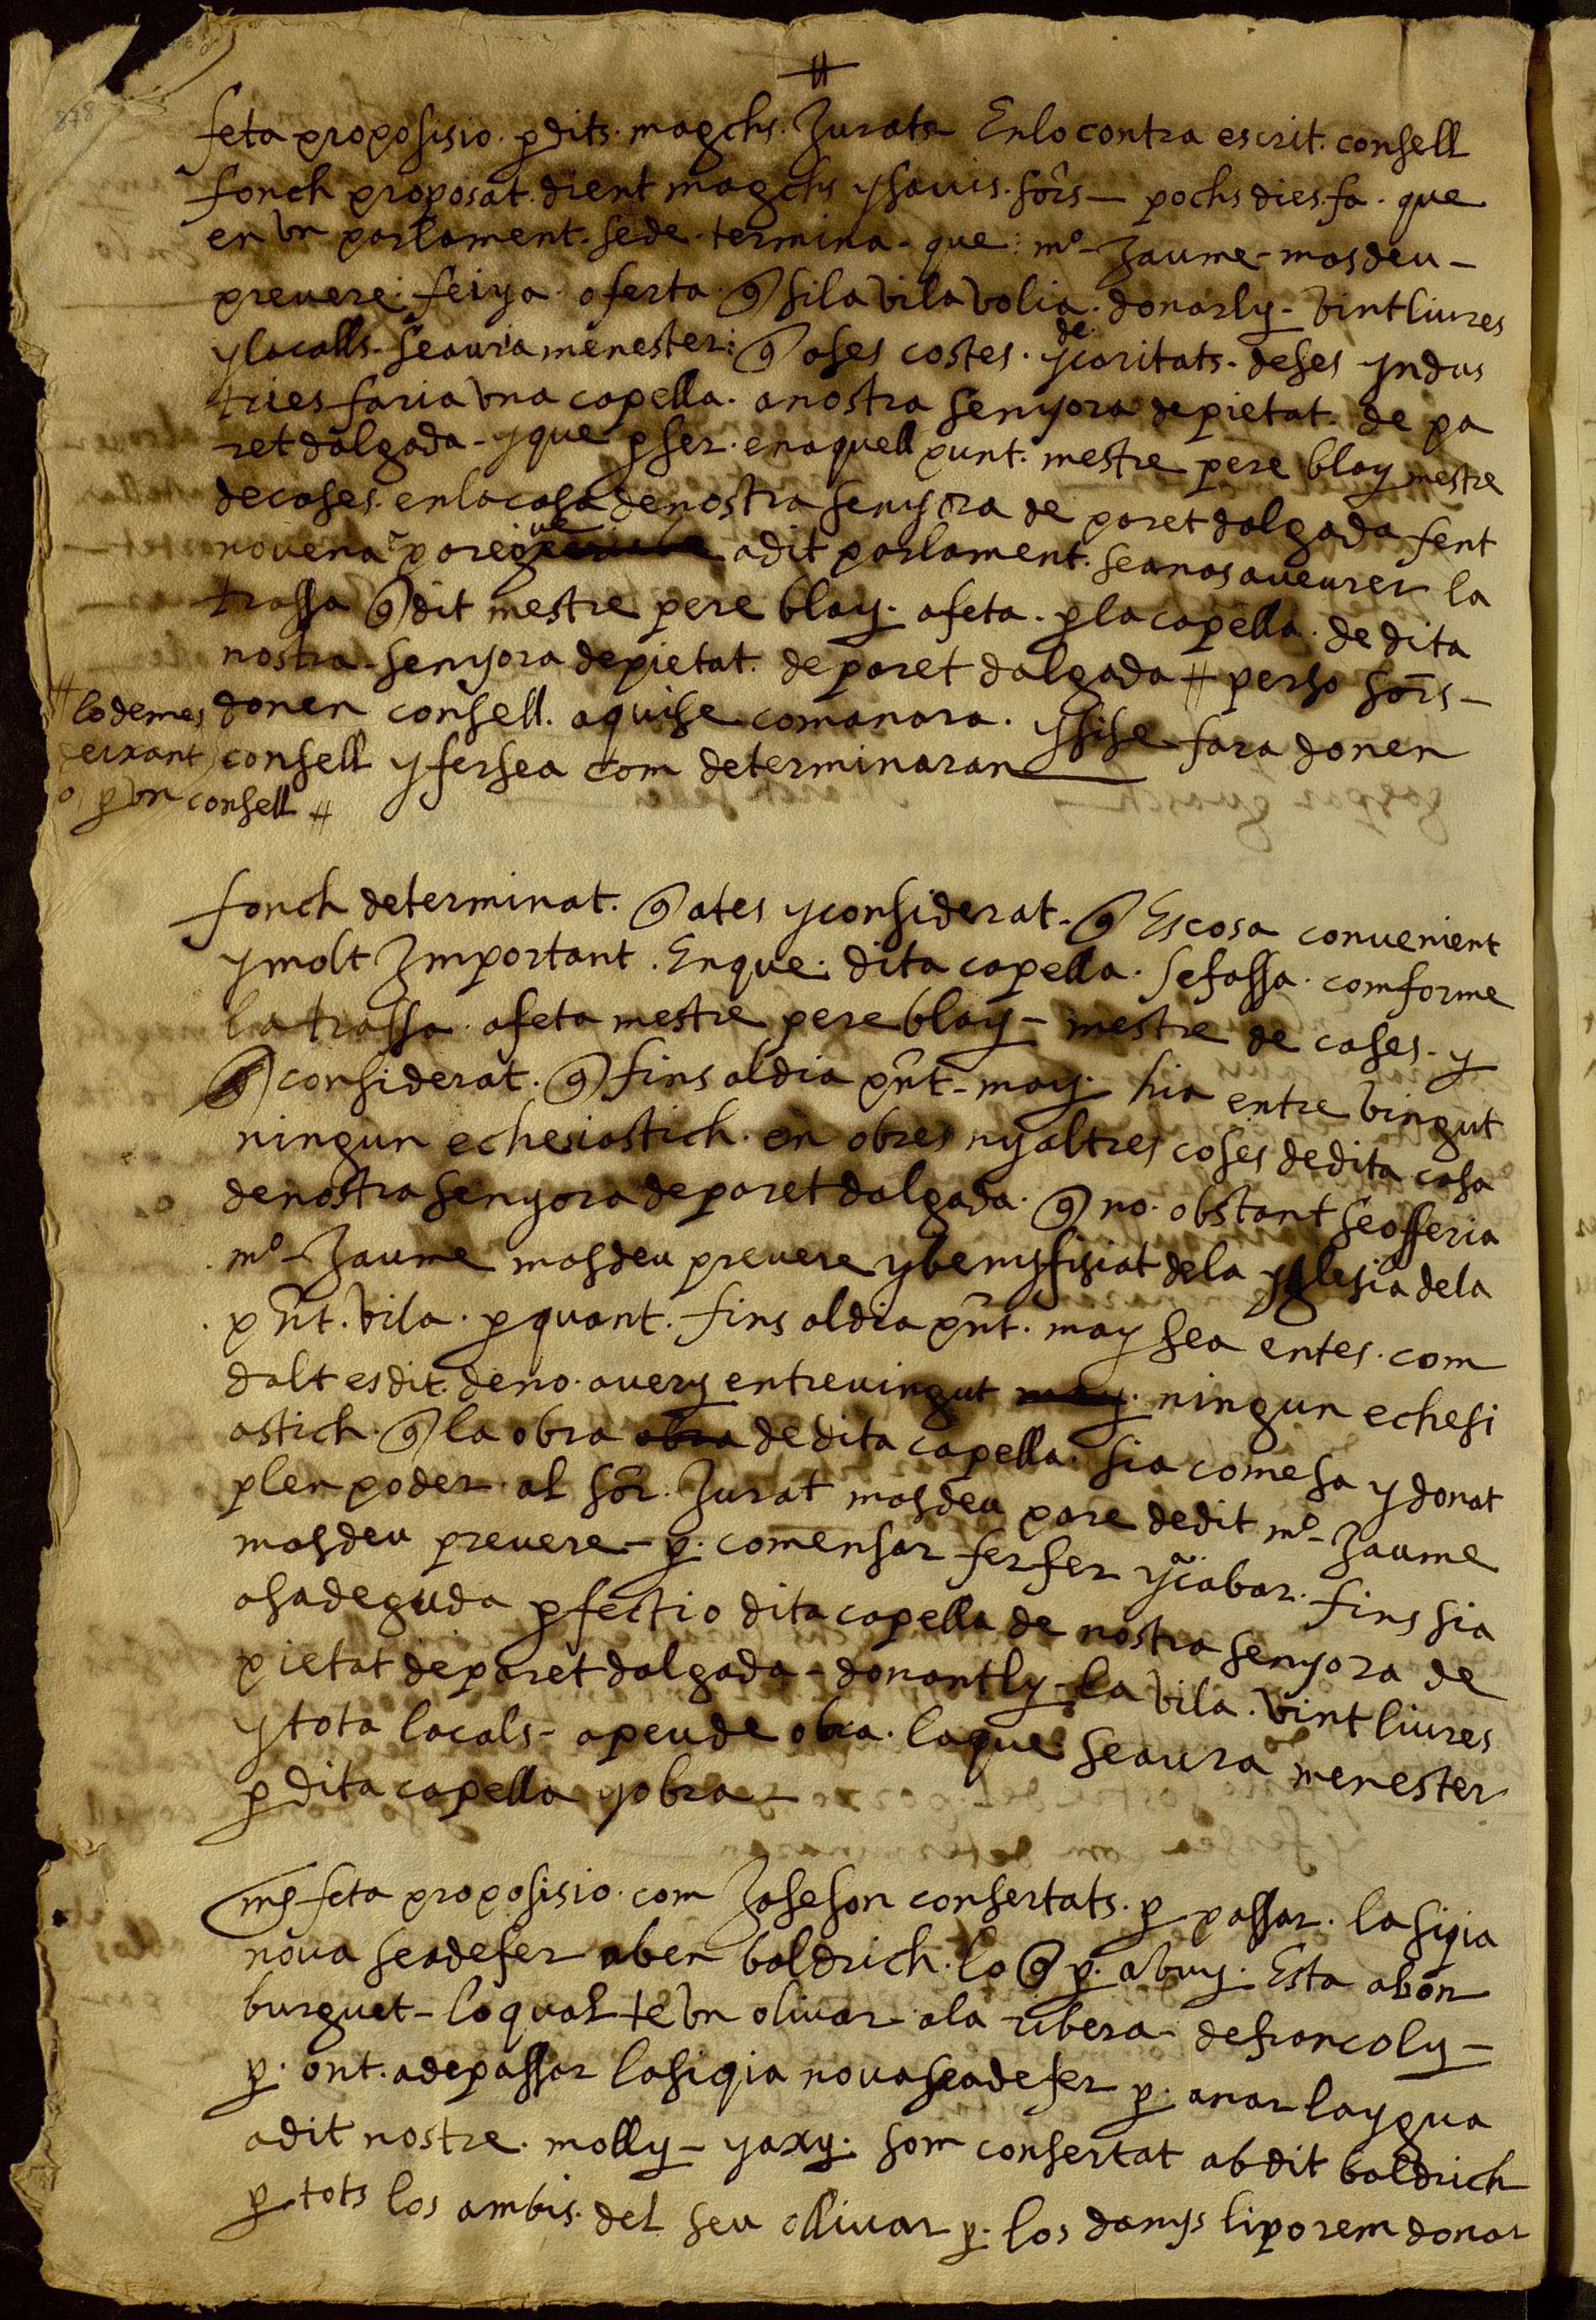 878
feta proposisio. p dits. magchs. Jurats Enlo contra escrit. consell
fonch proposat. dient magchs ysauis. sors — pochs dies. fa. que
en vn parlament. sede termina - que: mº Jaume - masdeu -
preuere: feiya. oferta. q sila vila volia. donarly - vint liures
ylacalls. seauria menester: q ases costes. yde caritats. deses yndus
tries faria vna capella. anostra senyora depietat. de pa
ret dalgada - yque p ser. enaquell punt. mestre pere blay mestre
decases. enlacasa denostra senyora de paret dalgada fent
novena paregue adit parlament. seanas aueurer la
trassa q dit mestre pere blay. afeta. p la capella. dedita
nostra senyora depietat. deparet dalgada # perso sors -
donen consell. aquise comanara. ysise fara donen
consell yfersea com determinaran
# lodemes
eixant
o, p vn consell #
fonch determinat. q ates yconsiderat. q Escosa conuenient
ymolt Important. Enque: dita capella. sefassa. comforme
la trassa. afeta mestre pere blay - mestre de cases. y
q considerat. q fins aldia pnt - may. hia entre vingut
ningun echesiastich. en obres nyaltres coses dedita casa
denostra senyora deparet dalgada. q no. obstant seofferia
mº Jaume masdeu preuere ybenyfisiat dela yglesia dela
pnt. vila. p quant. fins aldia pnt. may sea entes. com
dalt esdit. deno. avery entreuingut may. ningun echesi
astich. q la obra obra dedita capella. sia comesa ydonat
plen poder al sor. Jurat masdeu pare dedit mº Jaume
masdeu preuere - p. comensar ferfer yacabar. fins sia
asadeguda p fectio dita capella de nostra senyora de
pietat deparet dalgada - donantly - la vila. vint liures
ytota lacals - apeude obra. laque seaura menester
p dita capella yobra -
mes feta proposisio. com Jaseson consertats. p passar. lasiqia
nova seadefer aben baldrich. lo q p. abuy. Esta abon
burguet - loqual te vn oliuar ala ribera defrancoly -
p. ont. adepassar lasiqia nouaseadefer p. anar laygua
adit nostre. molly - yaxy. som consertat abdit baldrich
p tots los ambis. del seu olliuar p. los danys liporem donar